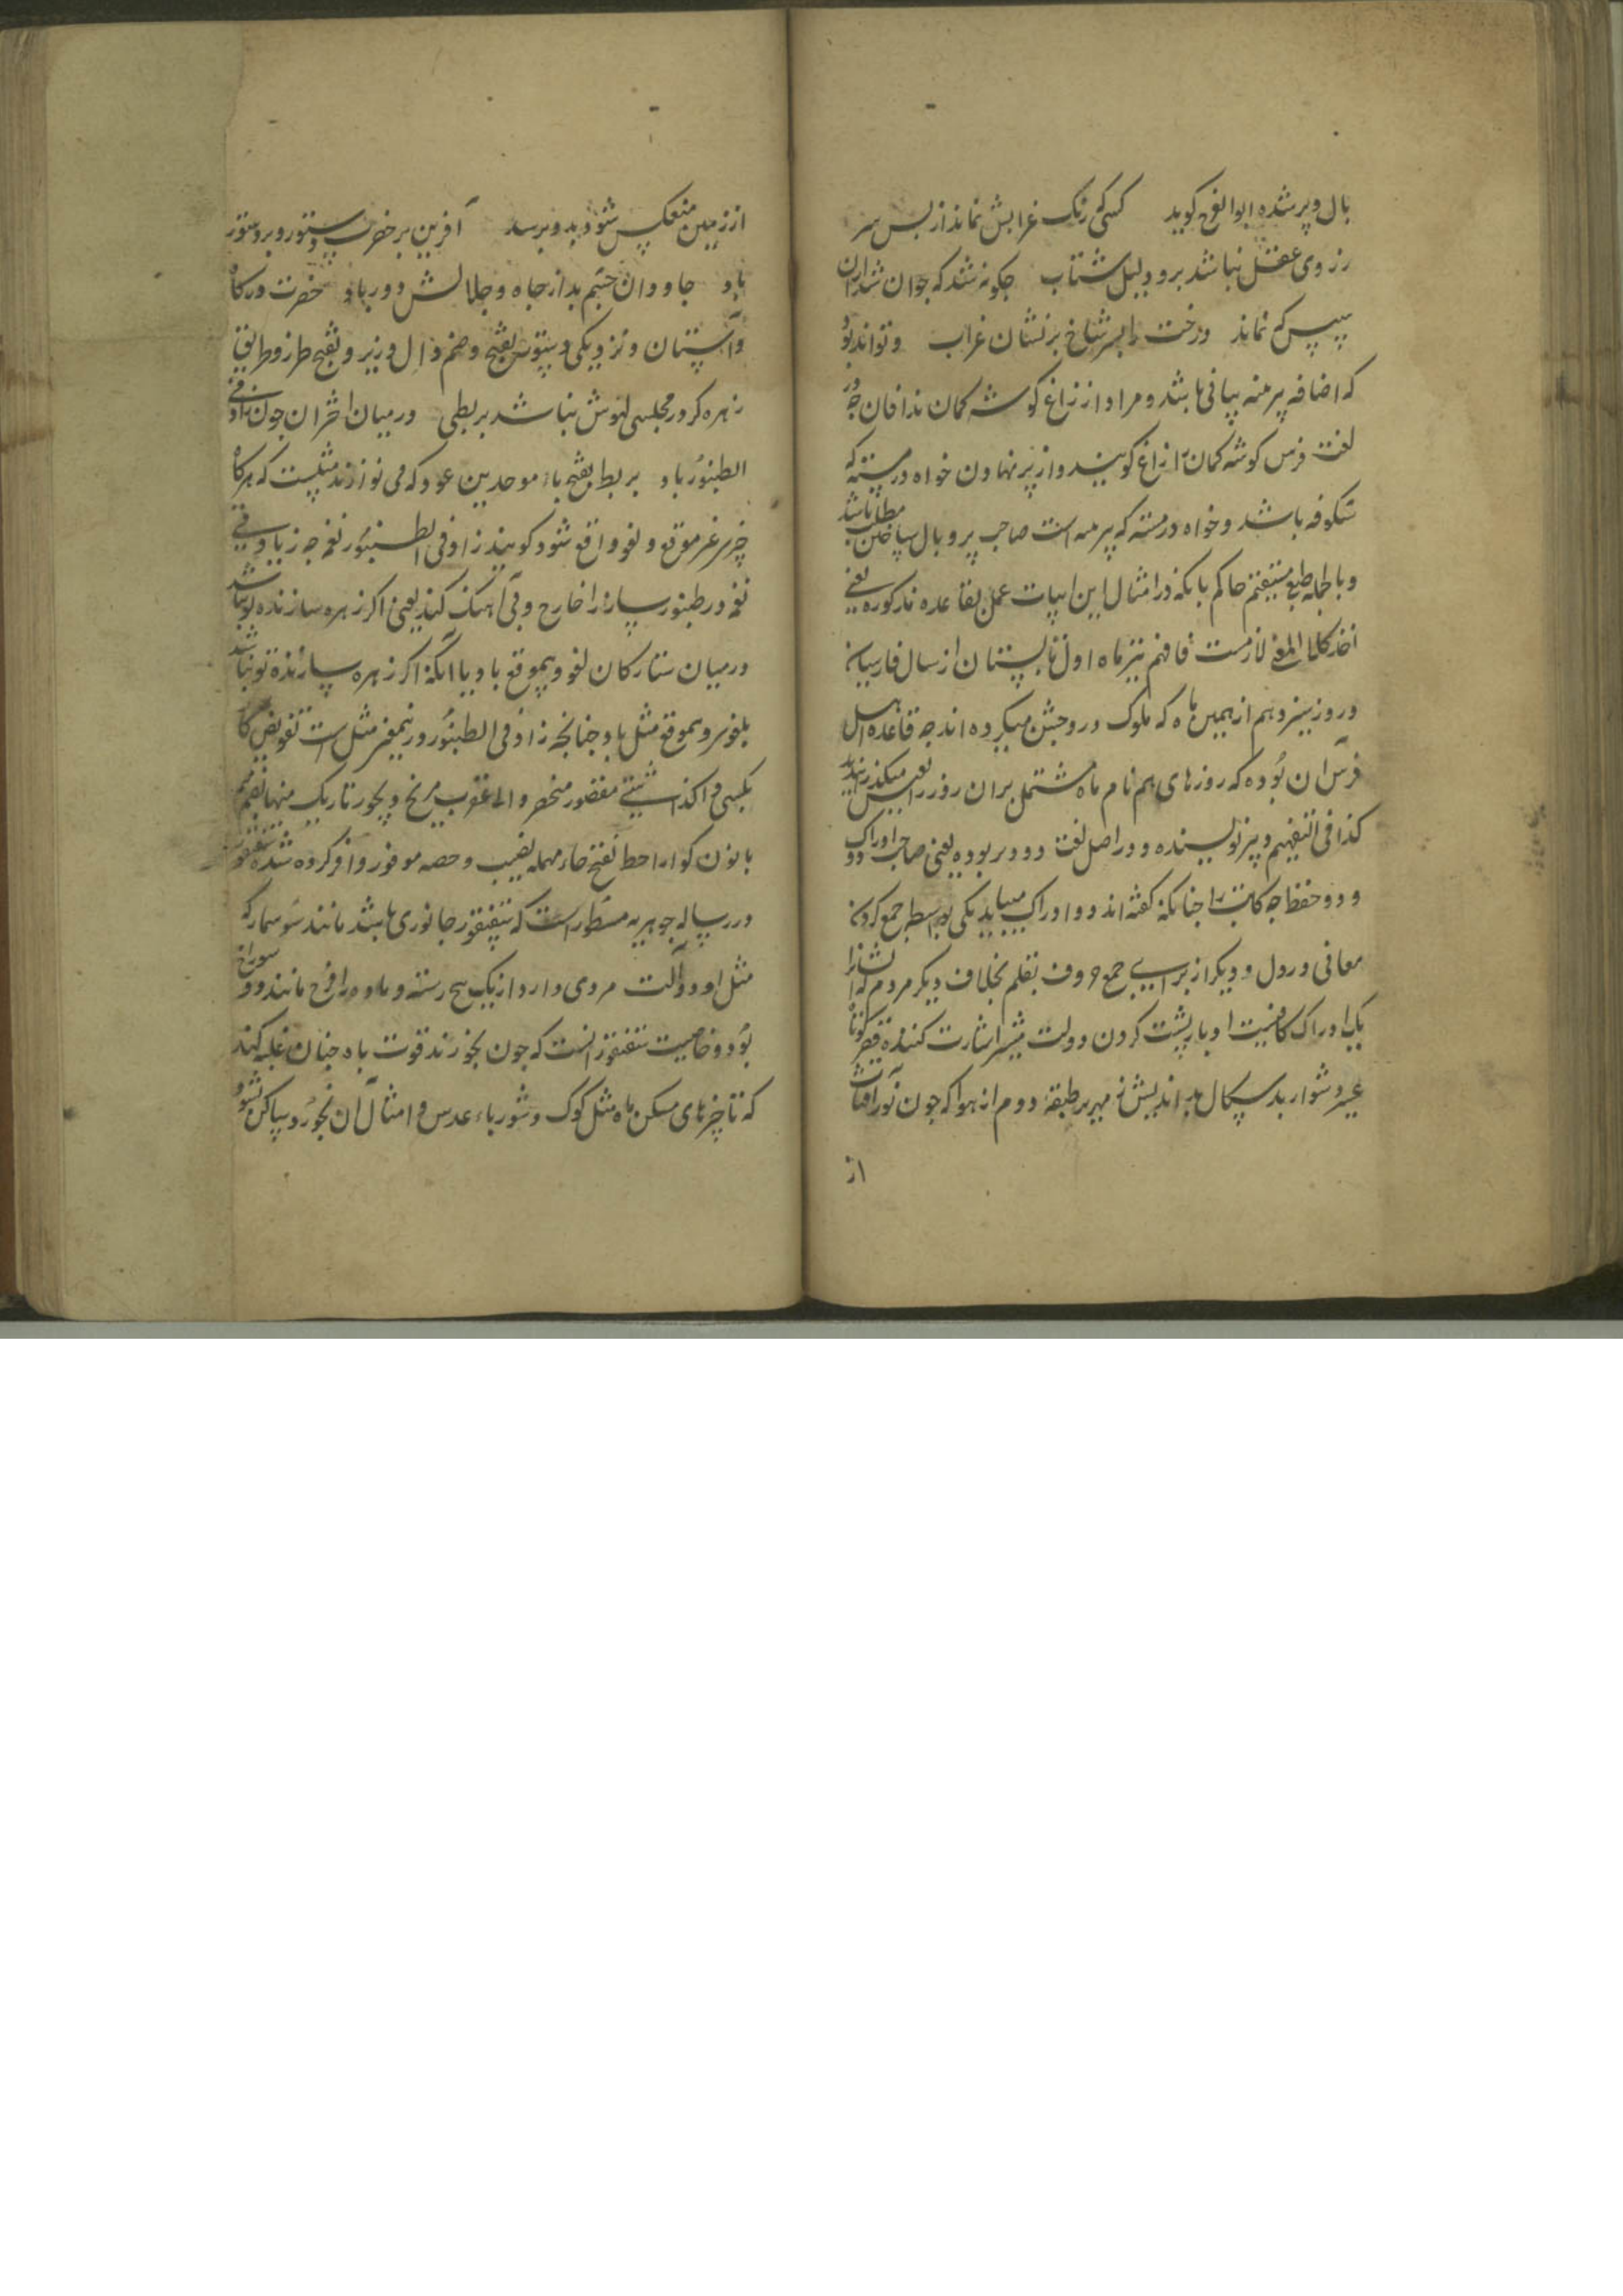 بال و پر شده ابوالفرج کوید کسی که رنک غرابش نماند از پس سر
ز روی عقل نباشد برو دلیل شتاب چکونه شد که جوان شد از ان
سپس که نماند درخت را بسر شاخ بر نشان غراب و تواند بود
که اضافه پر منه بیانی باشد و مراد از زاغ کوشه کمان ندافان چه در
لغت فرس کوشه کمان را زاغ کویند و از پر نهادن خواه درمسته که
شکوفه باشد و خواه درمسته که پر منه است صاحب پر و بال ساختن مطلب باشد
و بالجمله طبع مستقیم حاکم بانکه در امثال این ابیات عمل بقاعده مذکوره یعنی
اخذ کلام المغنی لازمست فافهم تیر ماه اول تابستان از سال فارسیان
و روز سیزدهم از همین ماه که ملوک در و جشن میکرده اند چه قاعده اهل
فرس ان بوده که روزهای هم نام ماه مشتمل بران روز را تعیین میکردند
کذا فی التفهیم دبیر نویسنده و در اصل لغت دوویر بوده یعنی صاحب دو ادراک
و دو حفظ چه کاتب را چنانکه کفته اند دو ادراک میباید یکی بواسطه جمع کردن
معانی در دل و دیکر از برای جمع حروف بقلم بخلاف دیکر مردم که ایشانرا
یک ادراک کافیست ادبار پشت کردن دولت مشیر اشارت کننده قصر کوتاه
عسیر دشوار بدسکال بد اندیش زمهریر طبقه دوم از هوا که چون نور افتاب
از
از زمین منعکس شود بدو برسد آفرین بر حضرت دستور و بر دستور
باد جاودان چشم بد از جاه و جلالش دور باد حضرت درکاه
و آستان و نزدیکی دستور بفتح و ضم دال وزیر و بفتح طرز و طریق
زهره کر در مجلس لهوش نباشد بربطی در میان اختران چون زاد فی
الطنبور باد بربط بفتح باء موحدین عود که می نوازند مثلیست که هر کاه
چیزی غیر موقع و لغو واقع شود کویند زاد فی الطنبور نغمه چه زیادتی
نغمه در طنبور ساز را خارج و بی اهنک کند یعنی اکر زهره سازنده تو نباشد
در میان ستارکان لغو و بیموقع باد یا انکه اکر زهره سازنده تو نباشد
بلغوی و بیموقعی مثل باد چنانچه زاد فی الطنبور در نیمعنی مثل است تفویض کار
بکسی وا کذاشتنی مقصور منحصر والی عقرب مریخ دیجور تاریک منها
با نون کوارا حظ بفتح حاء مهمله نصیب و حصه موفور وافر کرده شده سقنقور
در رساله جوهریه مسطور است که سقنقور جانوری باشد مانند سوسمار که
مثل او دو آلت مردی دارد از یک بیخ رسته و ماده را فرج مانند دو سوراخ
بود و خاصیت سقنقور انست که چون بخورند قوت باه چنان غلبه کند
که تا چیزهای مسکن باه مثل کوک و شورباء عدس و امثال آن نخورد ساکن نشود